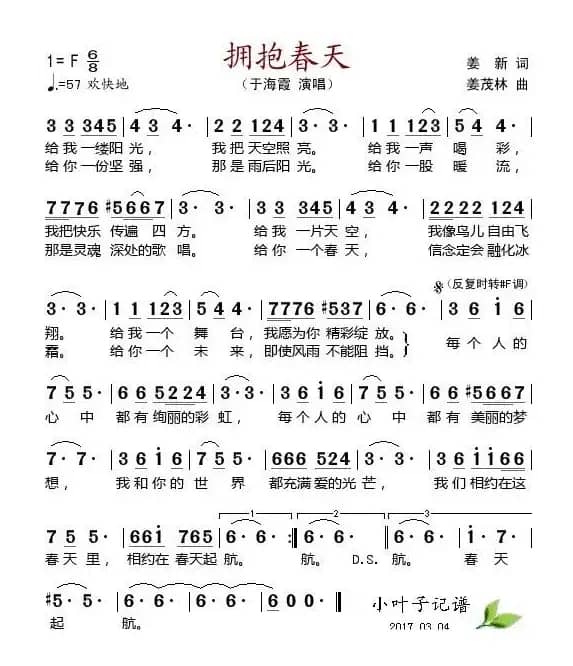 拥抱春天
1=F 6/8
♩.=57 欢快地
（于海霞 演唱）
姜 新 词
姜茂林 曲
3 3 345 | 4 3 4· | 2 2 124 | 3· 3· | 1 1 123 | 5 4 4· |
给我一缕阳光， 我把天空照亮。 给我一声 喝 彩，
给你一份坚强， 那是雨后阳光。 给你一股 暖 流，
7776 #5667 | 3· 3· | 3 3 345 | 4 3 4· | 2222 124 |
我把快乐 传遍 四 方。 给我 一片天 空， 我像鸟儿自由飞
那是灵魂 深处的歌 唱。 给你 一个春 天， 信念定会融化冰
（反复时转#F调）
3· 3· | 1 1 123 | 5 4 4· | 7776 #537 | 6· 6· | 3 6 i 6 |
翔。 给我一个 舞 台，我愿为你 精彩绽 放。 每 个 人 的
霜。 给你一个 未 来，即使风雨 不能阻 挡。
7 5 5· | 6 6 5224 | 3· 3· | 3 6 i 6 | 7 5 5· | 6 6 #5667 |
心 中 都 有 绚丽的彩 虹， 每 个 人 的 心 中 都 有 美丽的梦
7· 7· | 3 6 i 6 | 7 5 5· | 666 524 | 3· 3· | 3 6 i i 6 6 |
想， 我 和 你 的 世 界 都充满 爱的光 芒， 我 们 相约在这
1 2 3
7 5 5· | 66i 765 | 6· 6· :| 6· 6· | 6· 6· | i· 7· |
春 天 里， 相约在 春天起 航。 航。 D.S. 航。 春 天
#5· 5· | 6· 6· | 6· 6· | 6 0 0 0· ‖
起 航。
小叶子记谱
2017.03.04